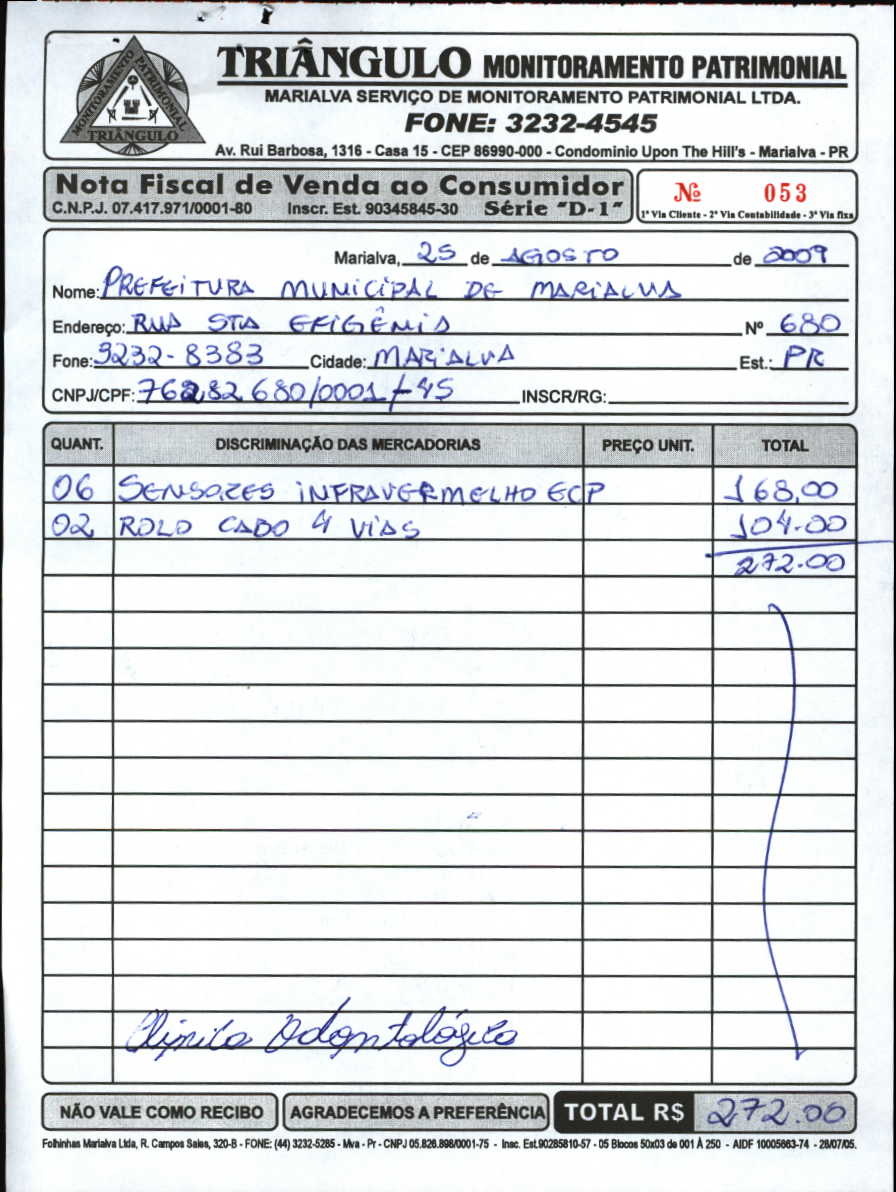 MONITORAMENTO PATRIMONIAL
TRIÂNGULO
TRIÂNGULO MONITORAMENTO PATRIMONIAL
MARIALVA SERVIÇO DE MONITORAMENTO PATRIMONIAL LTDA.
FONE: 3232-4545
Av. Rui Barbosa, 1316 - Casa 15 - CEP 86990-000 - Condominio Upon The Hill's - Marialva - PR
Nota Fiscal de Venda ao Consumidor
C.N.P.J. 07.417.971/0001-80 Inscr. Est. 90345845-30 Série "D-1"
Nº 053
1ª Via Cliente - 2ª Via Contabilidade - 3ª Via fixa
Marialva, 25 de AGOSTO de 2009
Nome: PREFEITURA MUNICIPAL DE MARIALVA
Endereço: RUA STA EFIGÊNIA Nº 680
Fone: 3232-8383 Cidade: MARIALVA Est.: PR
CNPJ/CPF: 76282680/0001-45 INSCR/RG:
QUANT. DISCRIMINAÇÃO DAS MERCADORIAS PREÇO UNIT. TOTAL
06 SENSORES INFRAVERMELHO ECP 168,00
02 ROLO CABO 4 VIAS 104.00
272.00
Clinica Odontológica
NÃO VALE COMO RECIBO AGRADECEMOS A PREFERÊNCIA TOTAL R$ 272.00
Folhinhas Marialva Ltda, R. Campos Sales, 320-B - FONE: (44) 3232-5285 - Mva - Pr - CNPJ 05.826.898/0001-75 - Insc. Est.90285810-57 - 05 Blocos 50x03 de 001 À 250 - AIDF 10005663-74 - 28/07/05.